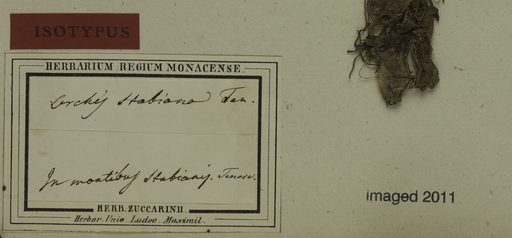 ISOTYPUS
HERBARIUM REGIUM MONACENSE.
Orchis stabiana Ten.
In montibus Stabianis. Tenore.
HERB. ZUCCARINII.
Herbar. Univ. Ludov. Maximil.
imaged 2011